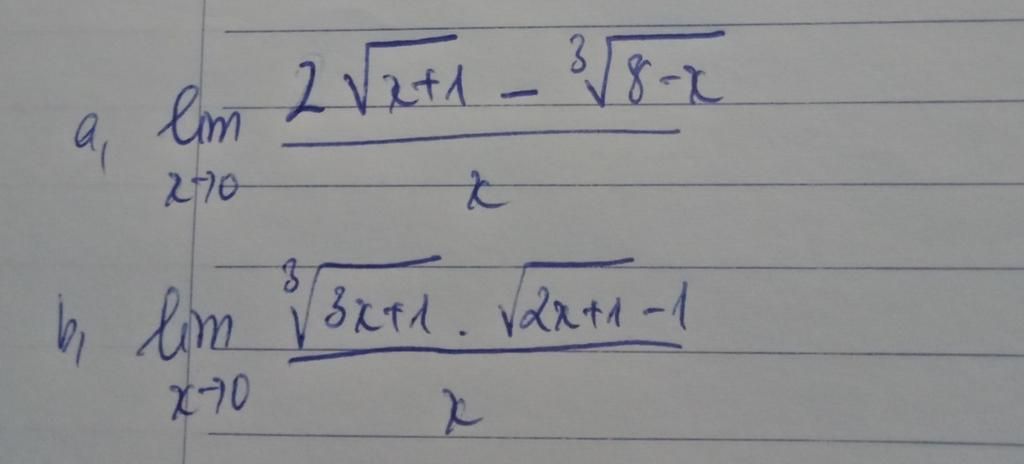 a, lim x→0 (2√(x+1) − ∛(8−x)) / x
b, lim x→0 (∛(3x+1) . √(2x+1) − 1) / x